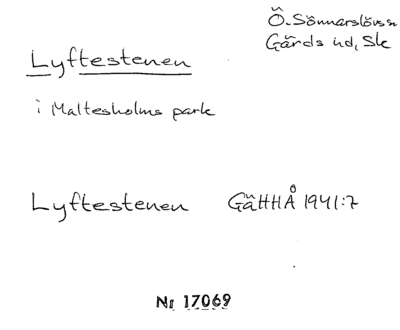 Ö. Sönnarslövs sn
Gärds hd, Sk
Lyftestenen
i Maltesholms park
Lyftestenen GäHHÅ 1941:7
Nr 17069